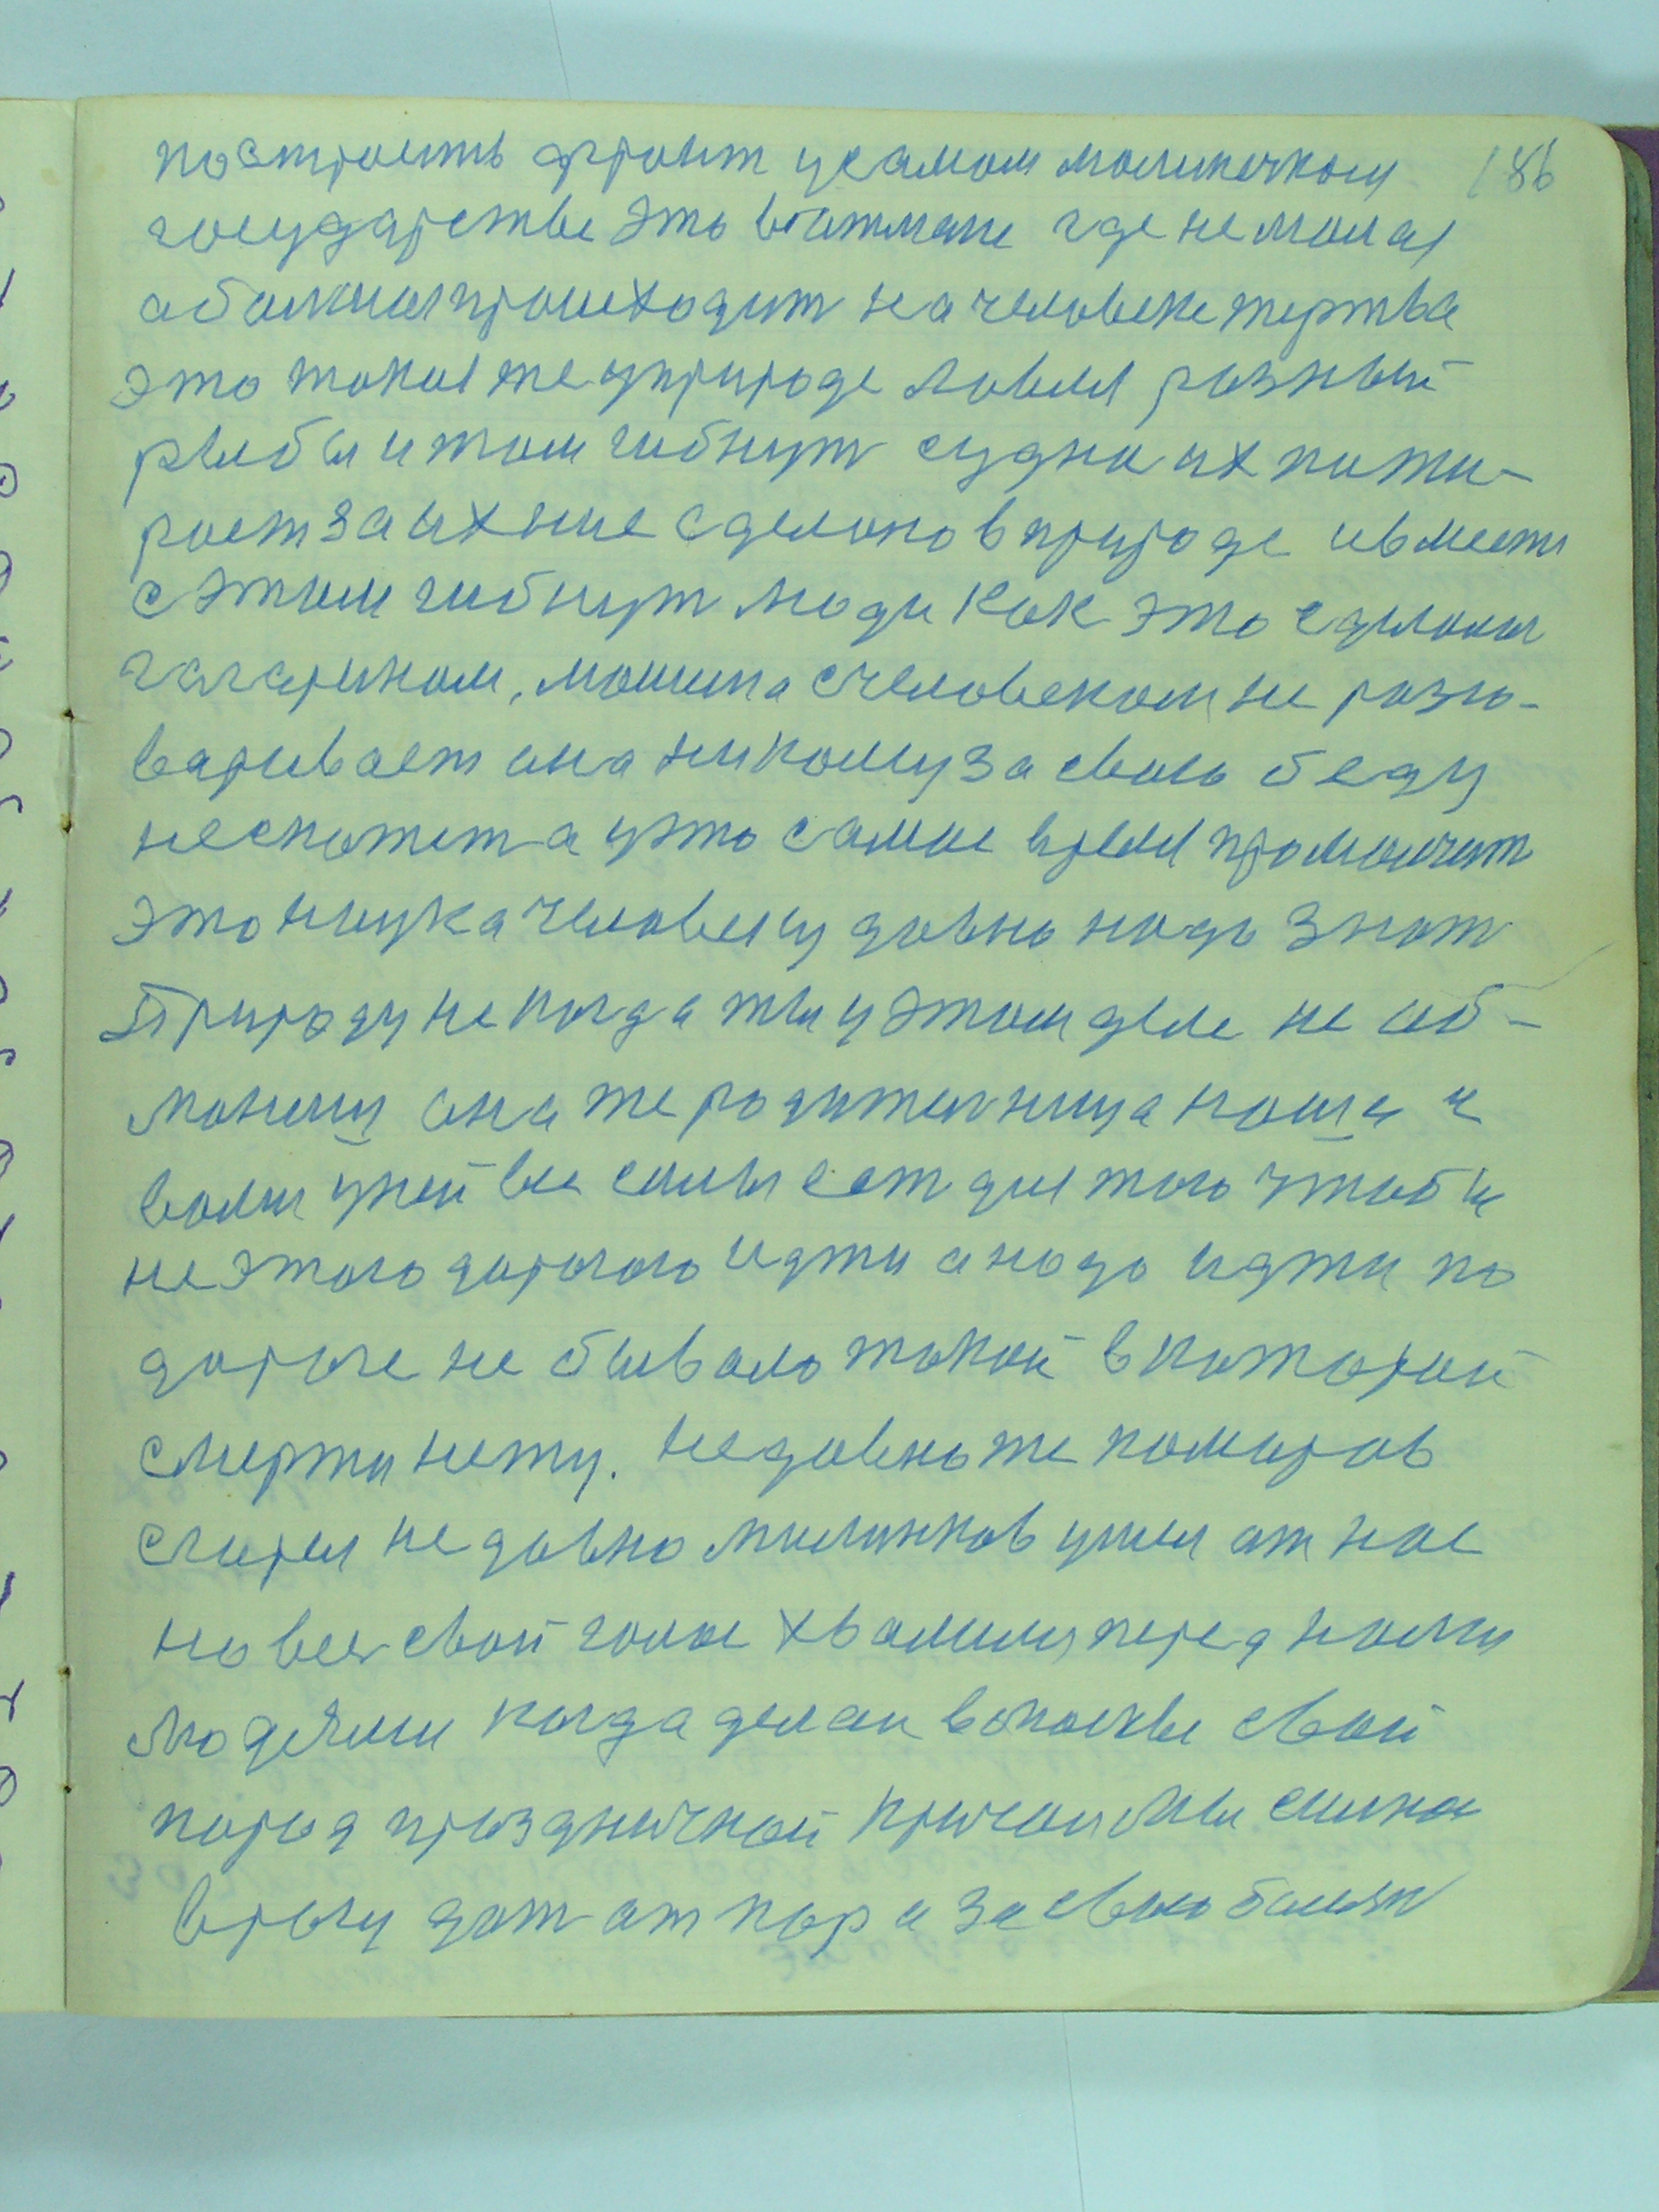 построить фронт у самом маленечкому 186
государстве это ватмане где не малая
а большая происходит на человеке жертва
это такая же у природе ловля разный
рыбы и там гибнут судна их пожи-
рает за ихние сделано в природе и вмести
с этим гибнут люди как это сделаны
гагарином, машина с человеком не разго-
варивает она никому за свою беду
не скажет а у это самое время промолчит
это наука человеку давно надо знат
Природу некогда ты у этом деле не об-
манеш она же родительница наша и
воли у ней все силы ест для того чтобы
не этого дорогою идти а надо идти по
дороге не бывало такой в которой
смерти нету. недавно же комаров
сгорел недавно малинков ушел от нас
на весь свой голос хвалили перед нами
людями когда делали в москве свой
парад праздничной кричали мы сильна
врагу дат отпор а за свою болезн